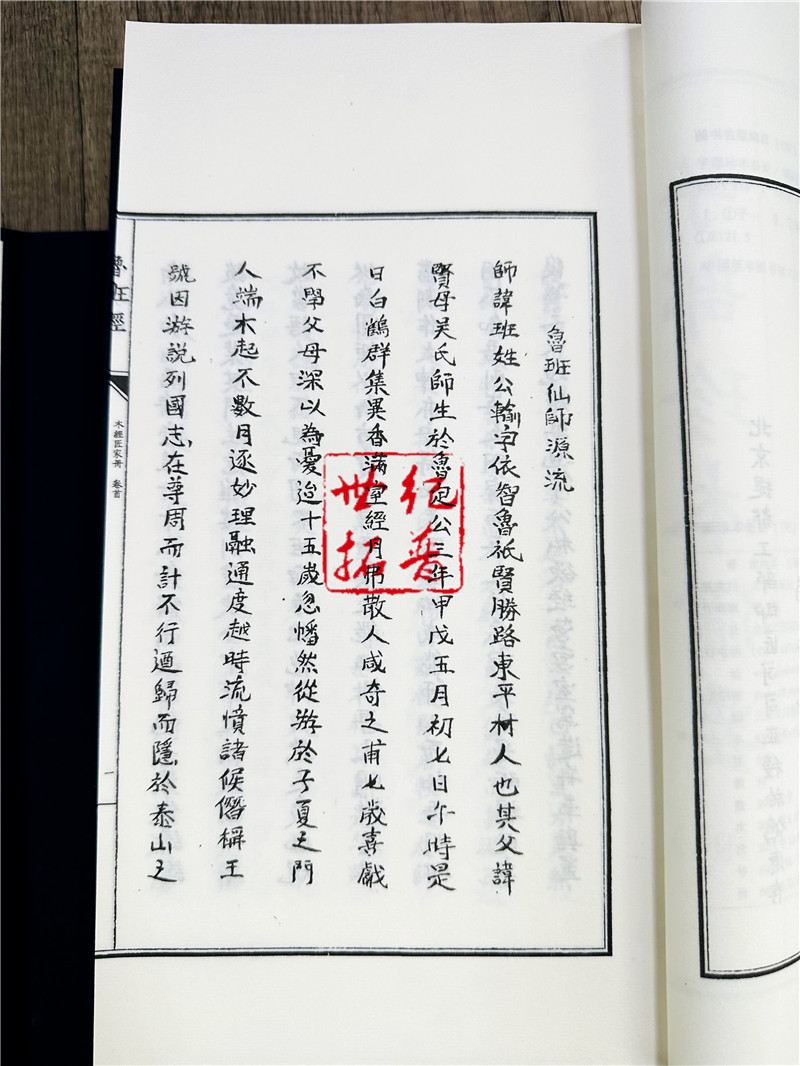 魯班仙師源流
師諱班姓公輸字依智魯祇賢勝路東平村人也其父諱
賢母吴氏師生於魯定公三年甲戊五月初七日午時是
日白鶴群集異香滿室經月弗散人咸奇之甫七歲喜戲
不學父母深以為憂迨十五歲忽幡然從游於子夏之門
人端木起不數月逐妙理融通度越時流憤諸候僭稱王
號因游說列國志在尊周而計不行迺歸而隱於泰山之
魯班經
木經匠家冊 卷首
一
世紀
拓普
北京提
工部